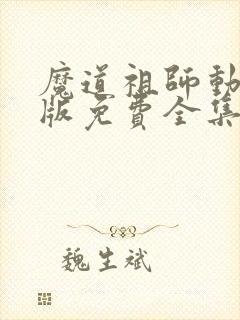 魔道祖师動
版免費全集
魏生斌